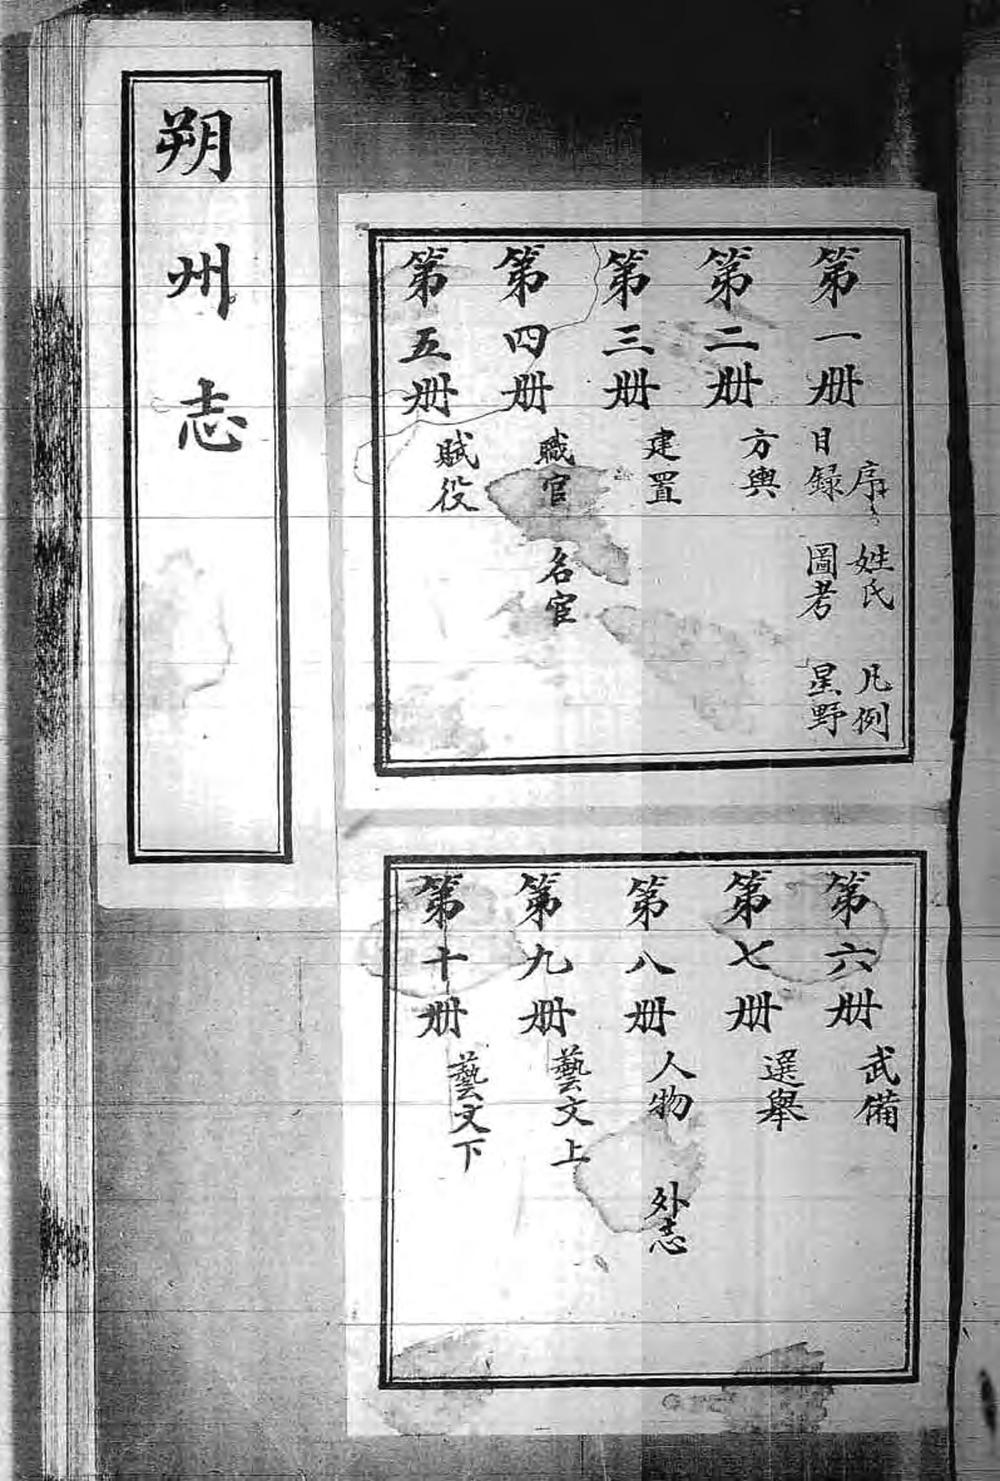 朔州志
第一册
序 姓氏 凡例
目録 圖考 星野
第二册 方輿
第三册 建置
第四册 職官 名宦
第五册 賦役
第六册 武備
第七册 選舉
第八册 人物 外志
第九册 藝文上
第十册 藝文下